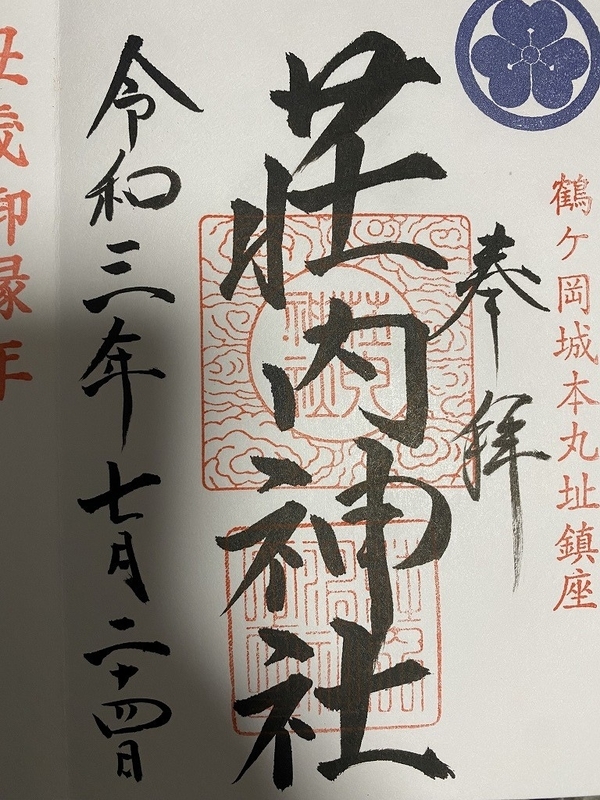 鶴ヶ岡城本丸址鎮座
奉拝
荘内神社
令和三年七月二十四日
丑歳御縁年